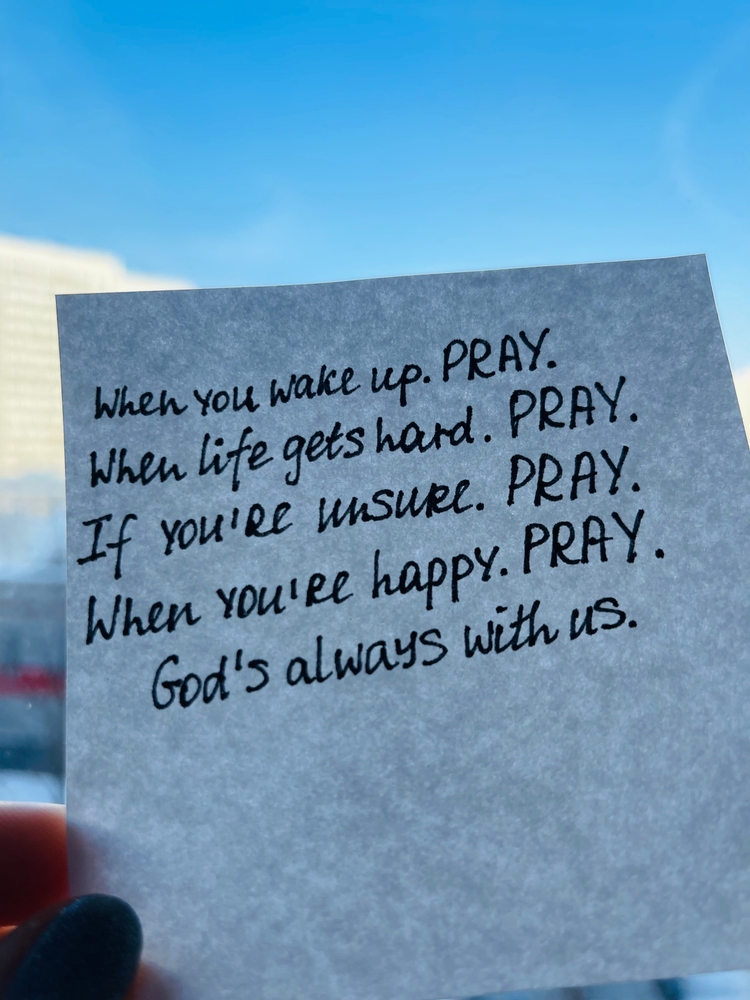 When you wake up. PRAY.
When life gets hard. PRAY.
If you're unsure. PRAY.
When you're happy. PRAY.
God's always with us.